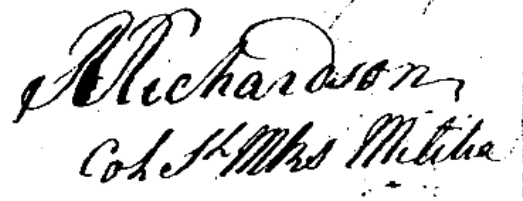 Richardson
Col Mks Militia